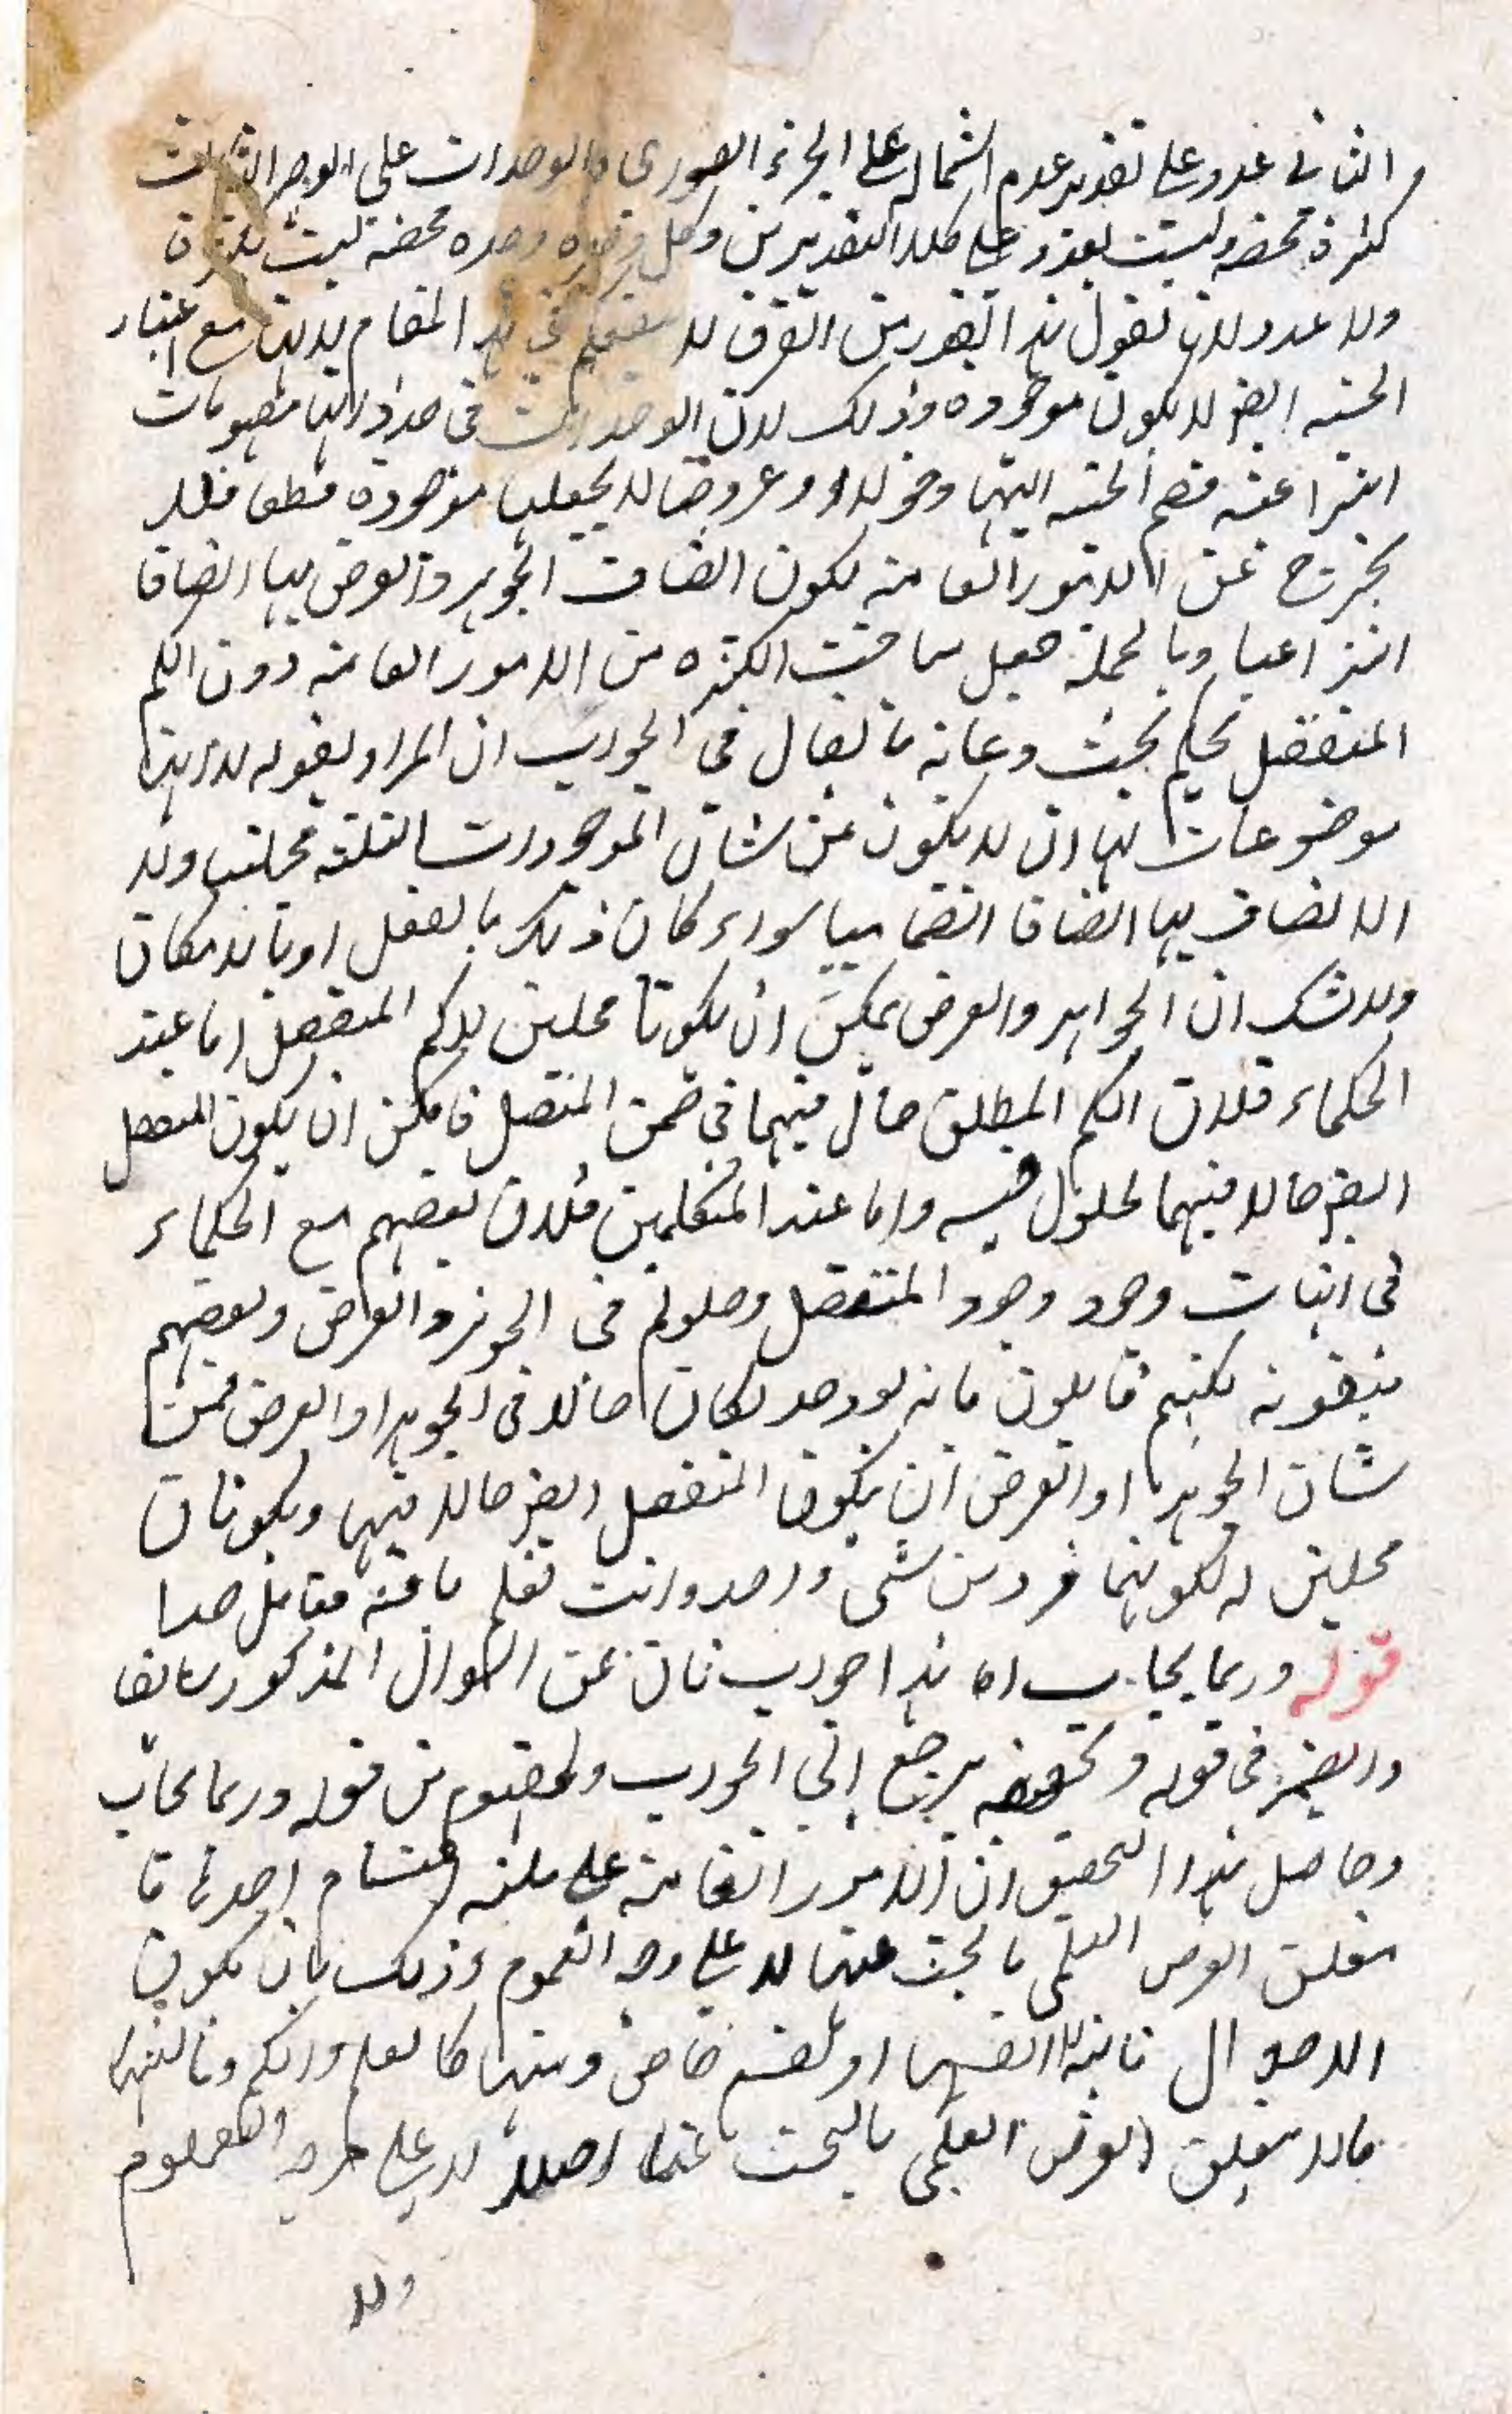 و الثانی عدد علی تقدیر عدم اشتماله علی الجزء الصوری والوحدات علی الوجه الثالث
کثرة محضة ولیست بعدد علی کلا التقدیرین وکل وحدة وحدة محضة لیست بکثرة
ولا عدد لانا نقول هذا القدر من الفرق لا فی هذا المقام لانها مع اعتبار
الحیثیة ایضا لا یکون موجودة وذلک لان الوحدات فی حد ذاتها مفهومات
انتزاعیة فضم الحیثیة الیها دخولا او عروضا لا یجعلها موجودة قطعا فلا
یخرج عن الامور العامة لکون اتصاف الجوهر والعرض بها اتصافا
انتزاعیا وبالجملة جعل مباحث الکثرة من الامور العامة دون الکم
المنفصل تحکم بحت وغایة ما یقال فی الجواب ان المراد بقوله لا انها
موضوعات لها ان لا یکون من شان الموجودات الثلثة محلیتها ولا
الاتصاف بها اتصافا انضمامیا سواء کان ذلک بالفعل او بالامکان
ولا شک ان الجواهر والعرض یمکن ان یکونا محلین للکم المنفصل اما عند
الحکماء فلان الکم المطلق حال فیهما فی ضمن المتصل فامکن ان یکون المنفصل
ایضا حالا فیهما لحلول جنسه واما عند المتکلمین فلان بعضهم مع الحکماء
فی اثبات وجود وجود المنفصل وحلوله فی الجوهر والعرض وبعضهم
ینفونه لکنهم قایلون بانه لو وجد لکان حالا فی الجوهر او العرض فمن
شان الجوهر او العرض ان یکون المنفصل ایضا حالا فیها ویکونان
محلین له لکونهما فردین شیء واحد وانت تعلم ما فیه فتامل جدا
قوله وربما یجاب اه هذا جواب ثان عن السوال المذکور سابقا
والضمیر فی قوله وتحقیقه یرجع الی الجواب المفهوم من قوله وربما یجاب
وحاصل هذا التحقیق ان الامور العامة علی ثلثة اقسام احدها ما
یتعلق الغرض العلمی بالبحث عنها لا علی وجه العموم وذلک بان یکون
الاحوال ثابتة لانفسها او لقسم خاص منها کالعلم والکم وثانیها
ما لا یتعلق الغرض العلمی بالبحث عنها اصلا لا علی وجه العموم
ولا